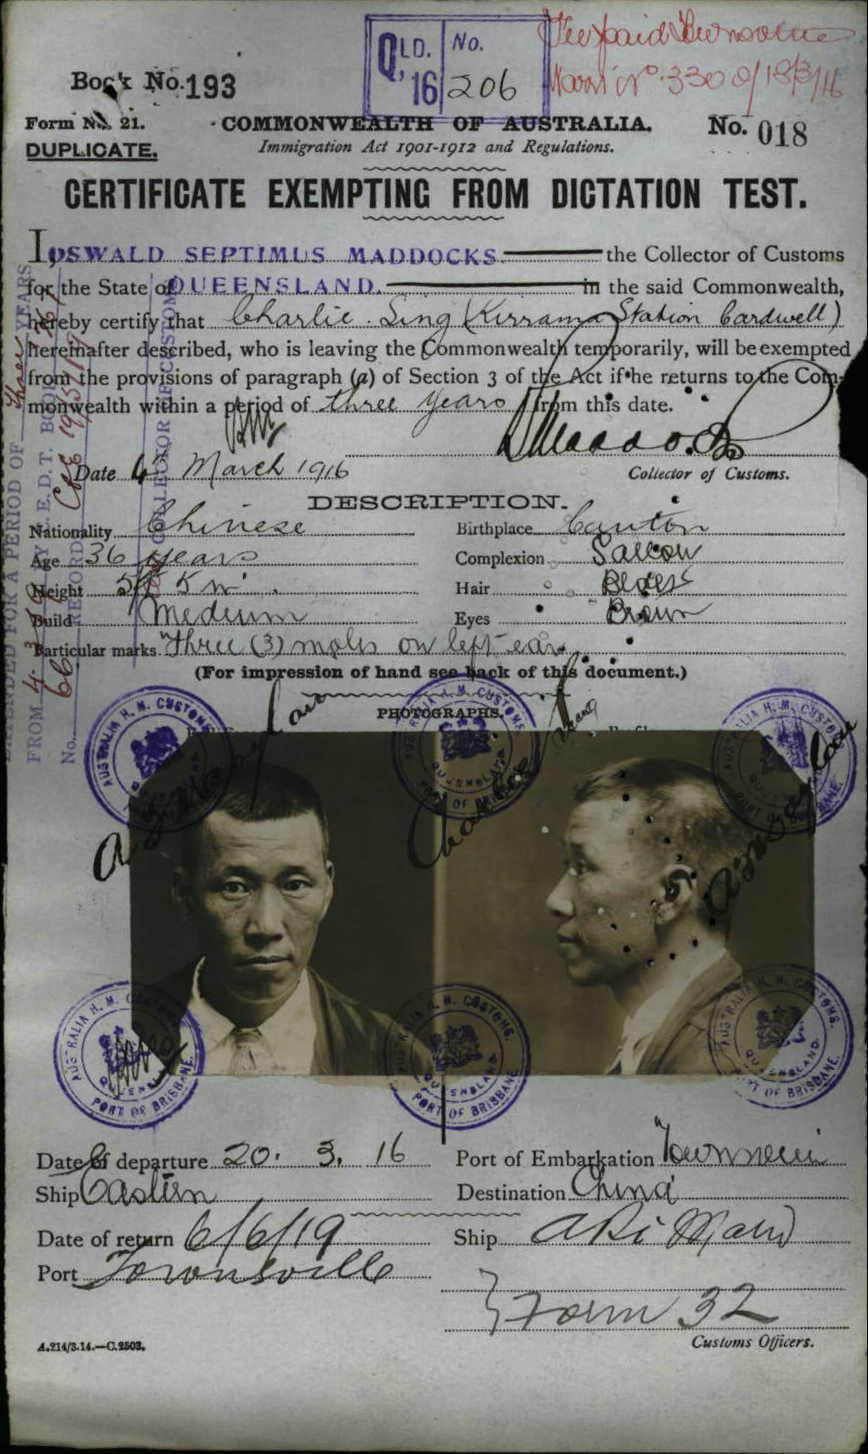 Fee paid Townsville
QLD. No.
'16 206
No. 330 of 18/3/16
Book No. 193
Form No. 21.
COMMONWEALTH OF AUSTRALIA.
No. 018
DUPLICATE.
Immigration Act 1901-1912 and Regulations.
CERTIFICATE EXEMPTING FROM DICTATION TEST.
I, OSWALD SEPTIMUS MADDOCKS the Collector of Customs
for the State of QUEENSLAND. in the said Commonwealth,
hereby certify that Charlie Sing (Kirrama Station Cardwell)
hereinafter described, who is leaving the Commonwealth temporarily, will be exempted
from the provisions of paragraph (a) of Section 3 of the Act if he returns to the Com-
monwealth within a period of three years from this date.
Date 4 March 1916
Collector of Customs.
DESCRIPTION.
Nationality Chinese Birthplace Canton
Age 36 years Complexion Sallow
Height 5ft 5in Hair Black
Build Medium Eyes Brown
Particular marks three (3) moles on left ear
(For impression of hand see back of this document.)
PHOTOGRAPHS.
AUSTRALIA H. M. CUSTOMS.
QUEENSLAND.
PORT OF BRISBANE.
Date of departure 20. 3. 16 Port of Embarkation Townsville
Ship Eastern Destination China
Date of return 6/6/19 Ship Aki Maru
Port Townsville
Form 32
A.214/3.14.—C.2503.
Customs Officers.
FOR A PERIOD OF three YEARS
FROM 4.3.19
No. 66
RECORD
COLLECTOR OF CUSTOMS